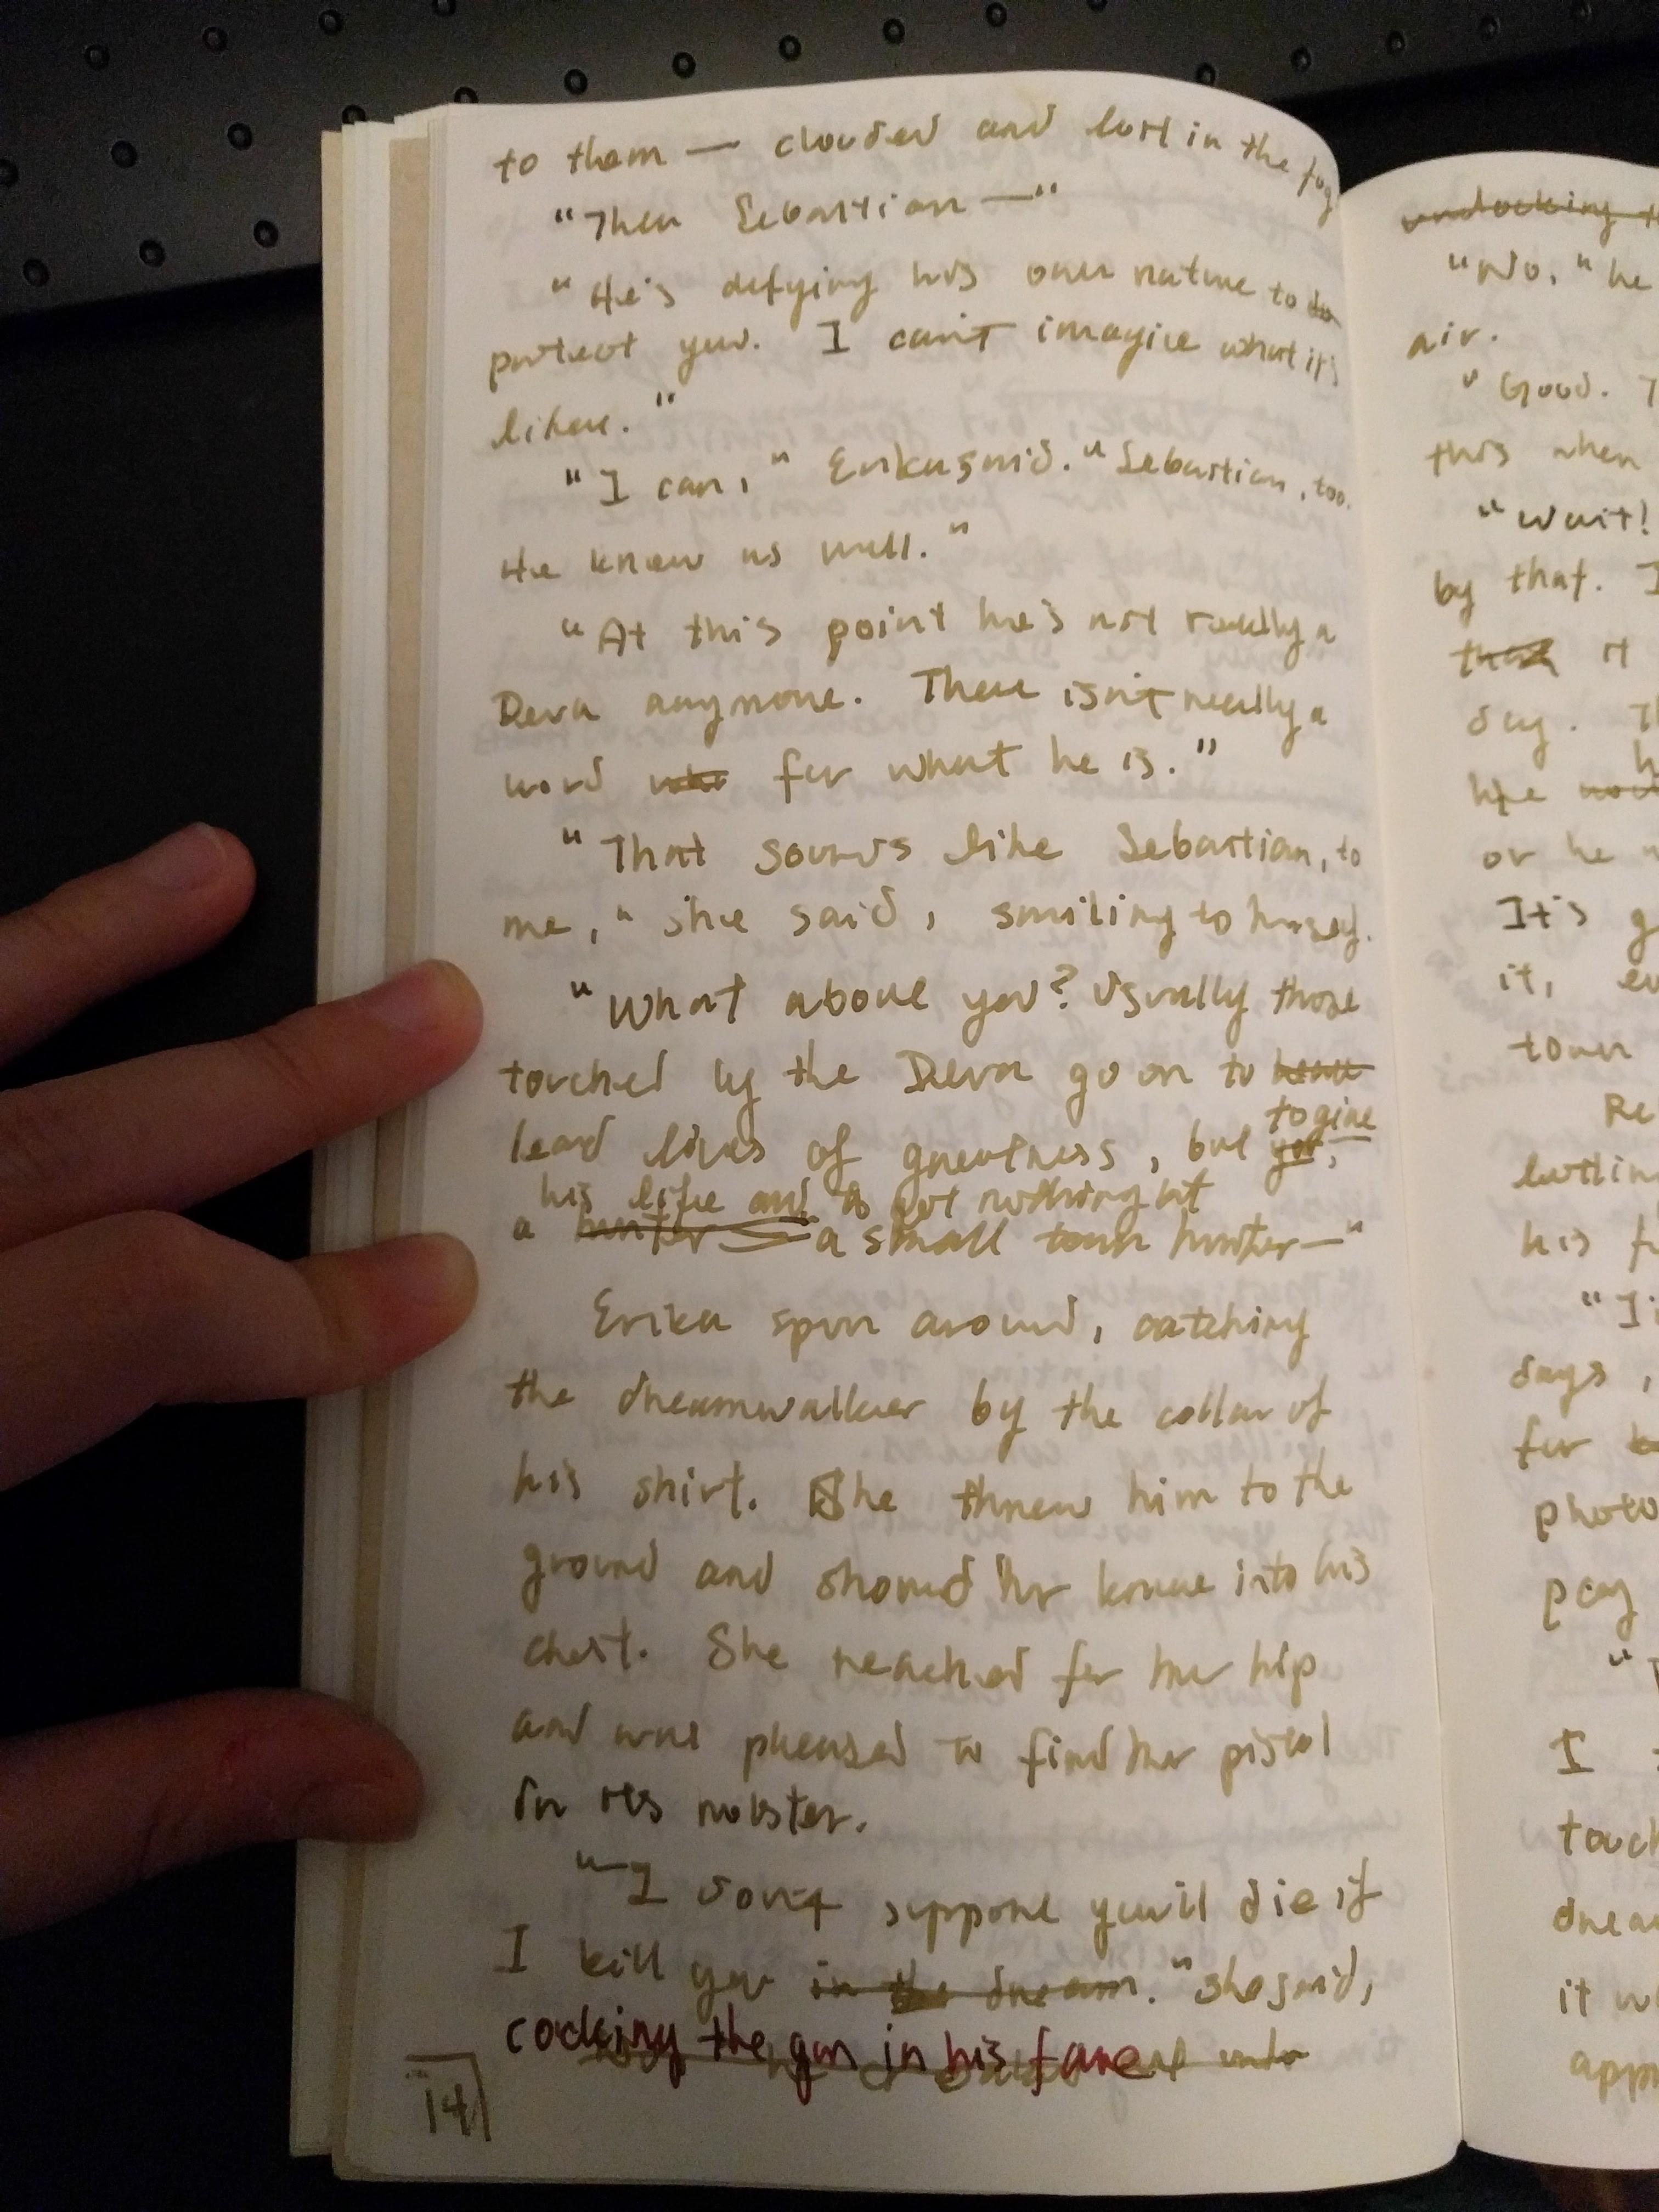 to them — clouded and lost in the fog
"Then Sebastian —"
"He's defying his own nature to do
protect you. I can't imagine what it's
like."
"I can," Erika said. "Sebastian, too.
He knew us well."
"At this point he's not really a
Deva anymore. There isn't really a
word for what he is."
"That sounds like Sebastian, to
me," she said, smiling to herself.
"What about you? Usually those
touched by the Deva go on to
lead lives of greatness, but you,
to give
his life and get nothing but
a hunter — a small town hunter—"
Erika spun around, catching
the dreamwalker by the collar of
his shirt. She threw him to the
ground and shoved her knee into his
chest. She reached for her hip
and was pleased to find her pistol
in its holster.
"I don't suppose you'll die if
I kill you in the dream." she said,
cocking the gun in his face
14
unlocking
"No," he
air.
"Good.
this when
"Wait!
by that. I
it
day.
or he
It's
it,
town
his
"I
days,
for
photo
pay
I
touch
drea
it
app